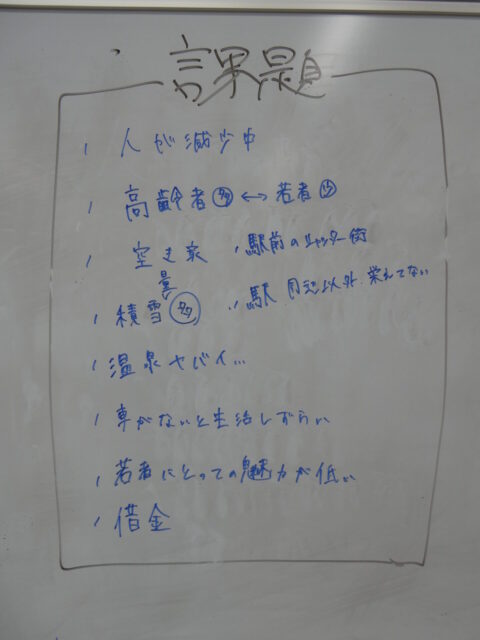 課題
人が減少中
高齢者 多 ↔ 若者 少
空き家 駅前のシャッター街
積雪量 多 駅 周辺以外、栄えてない
温泉ヤバイ…
車がないと生活しずらい
若者にとっての魅力が低い
借金